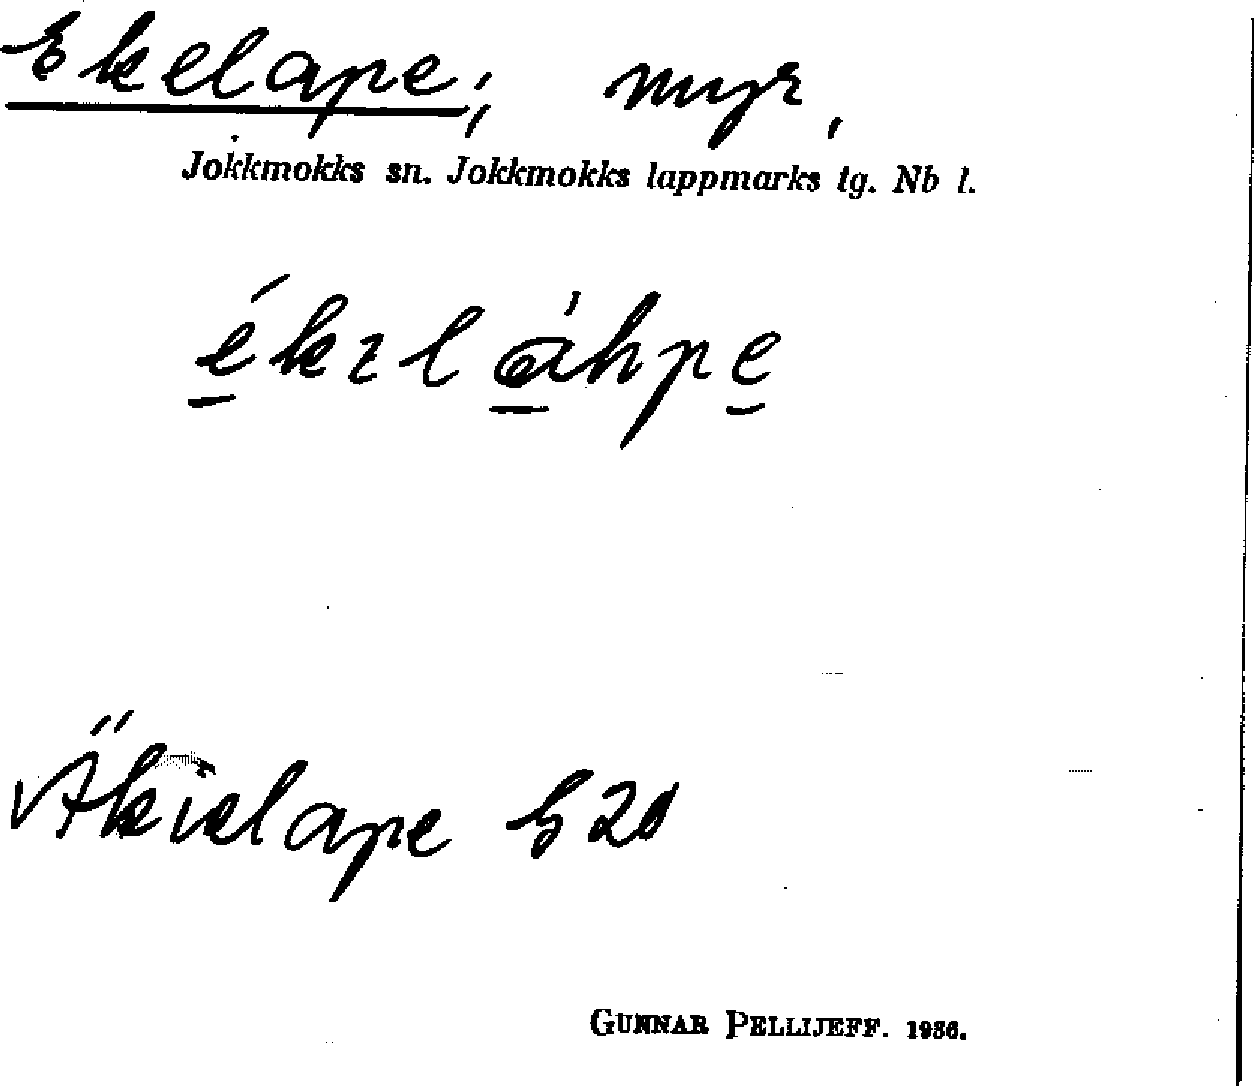 Ekelape; myr,
Jokkmokks sn. Jokkmokks lappmarks tg. Nb l.
ékɪláhpe
Äkielape
GUNNAR PELLIJEFF. 1936.